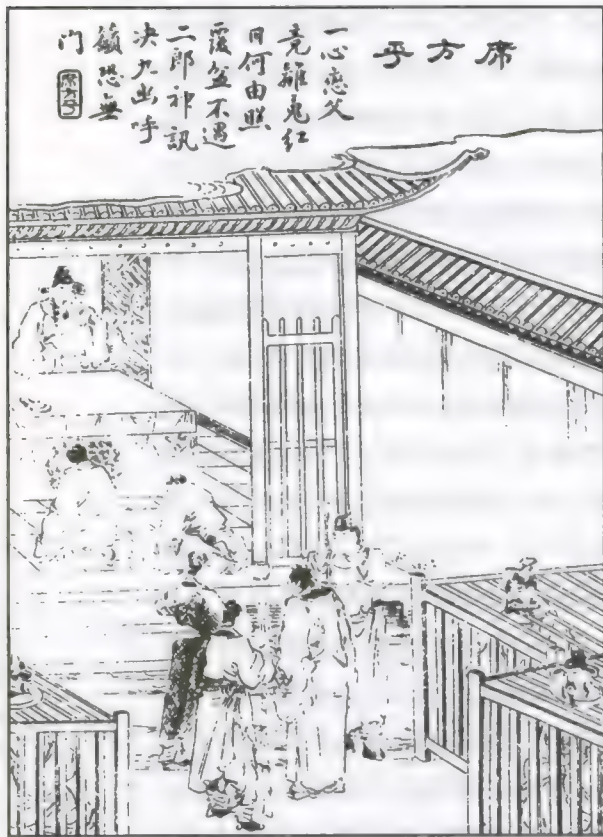 席方平
一心恋父
竟離魂紅
日何由照
覆盆不遇
二郎神訊
決九幽呼
籲恐無
門